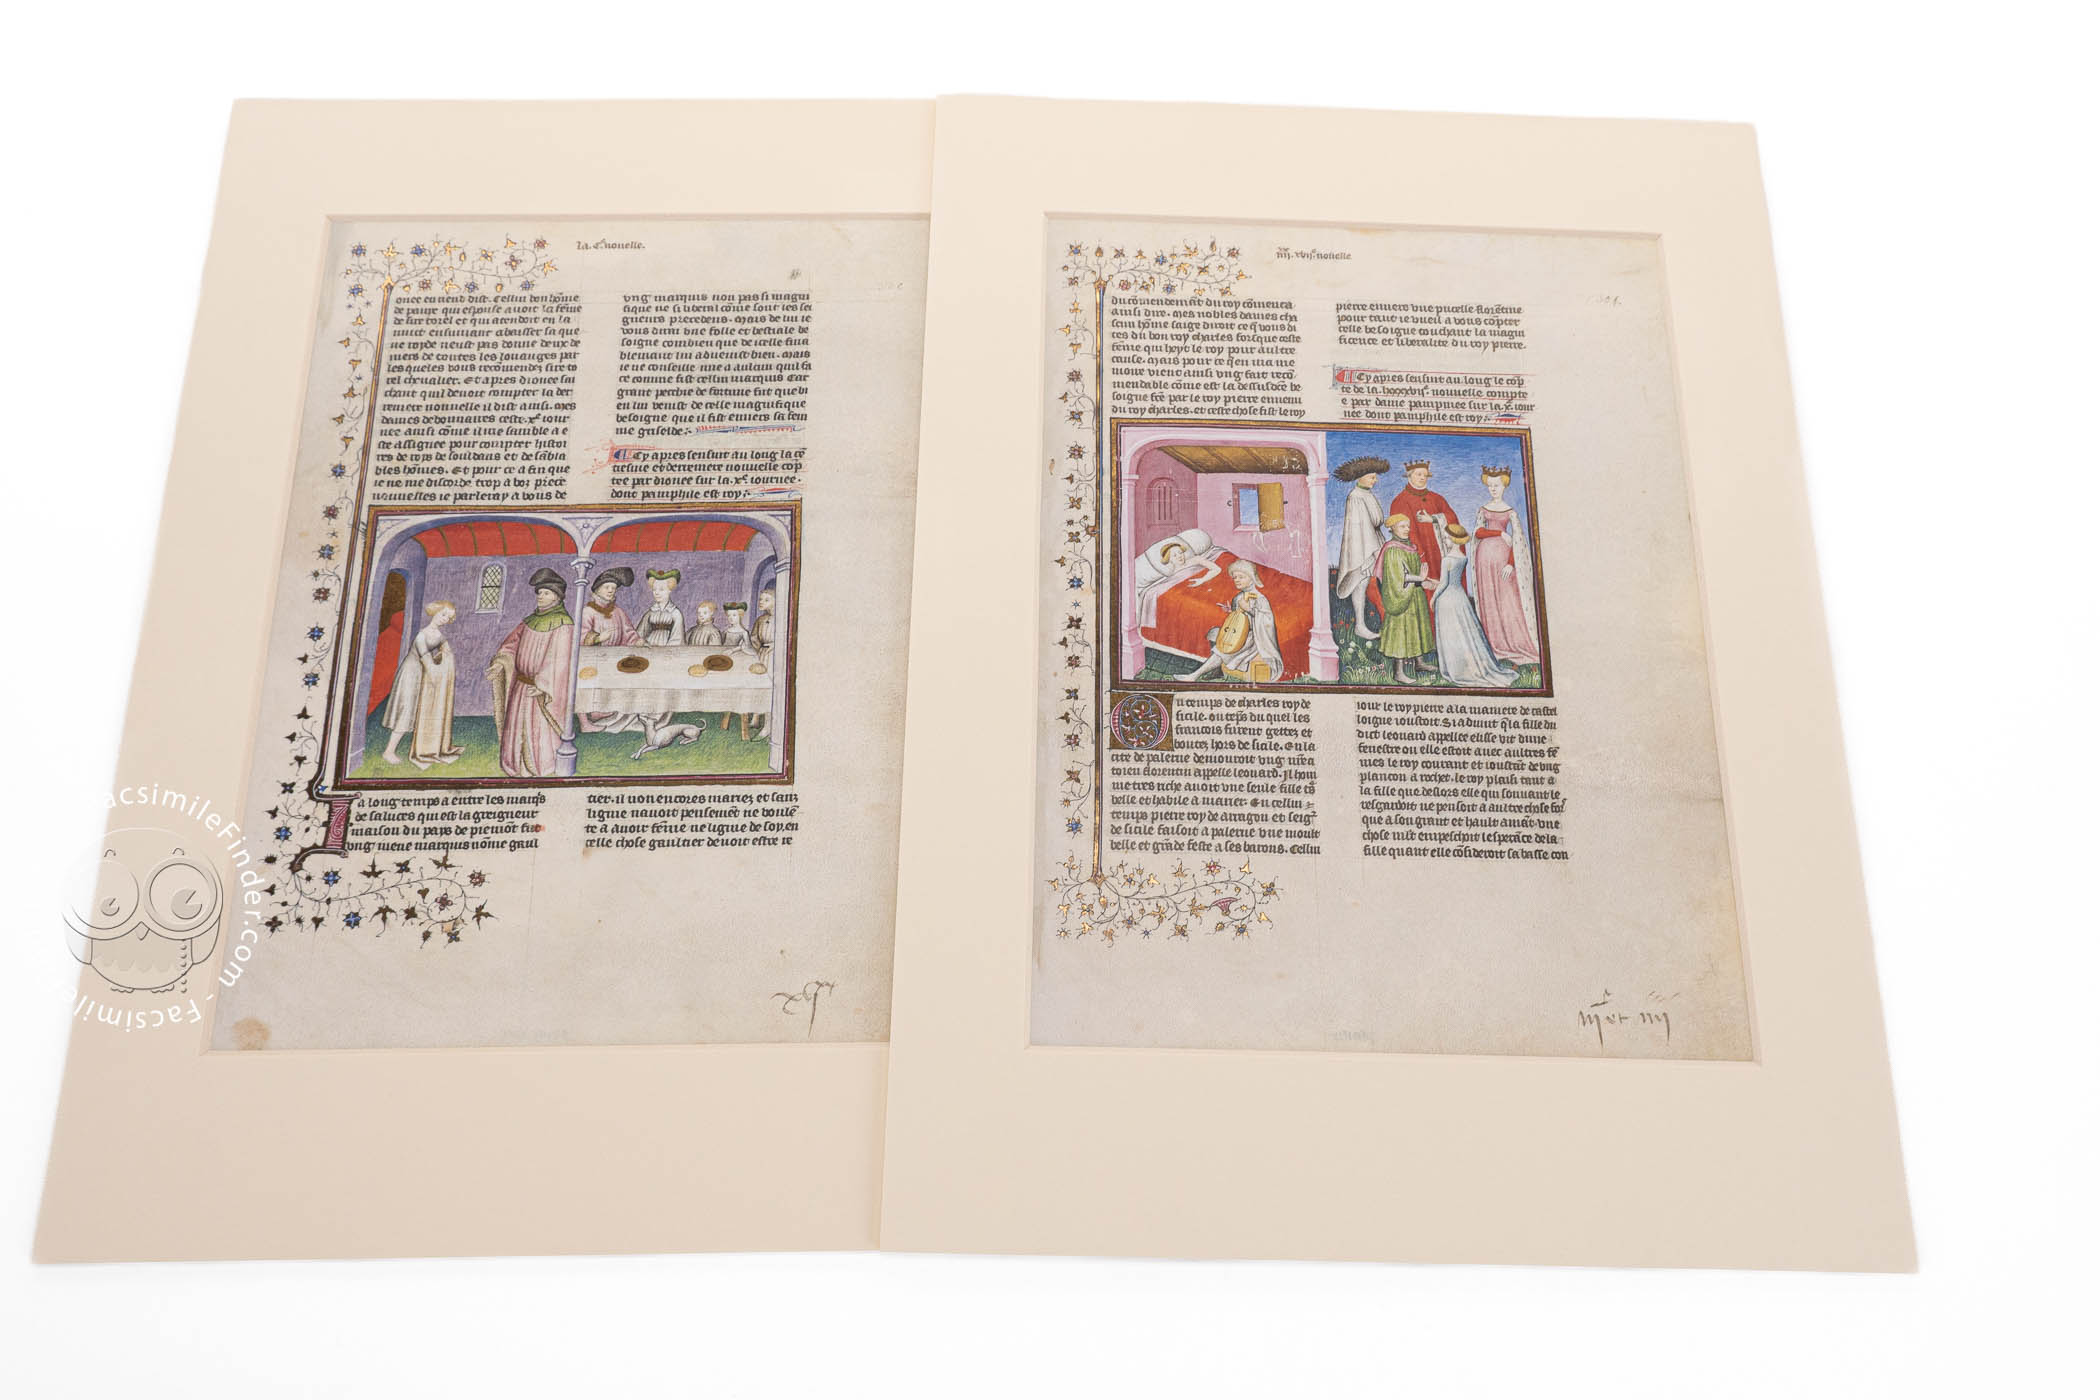 la. Ce. nouelle.
onee en uend dist. Cellui bon hõme
de paure qui espouse auoit la fẽme
de sire torel et qui atendoit en la
nuit ensuiuant abaisser sa que
ne royde neust pas donne deux de
niers de toutes les louanges par
les queles vous recõmendez sire to
rel chevalier. Et apres dionee sai
chant quil deuoit compter la der
reniere nouuelle il dist ainsi. mes
dames debonnaires ceste .xe. iour
nee ainsi cõme il me samble a e
ste assignee pour compter histoi
res de roys de souldans et de sẽbla
bles hõmes. Et pour ce a fin que
ie ne me discorde trop a voz prece
nouuelles ie parleray a vous de
vng marquis non pas si magni
fique ne si liberal cõme sont les sei
gneurs precedens. mais de lui ie
vous diray vne folle et bestiale be
soigne combien que de icelle fina
blemant lui aduenist bien. mais
ie ne conseille mie a aulcun quil fa
ce comme fist cellui marquis Car
grant pechie de fortune fut que bi
en lui venist de celle magnifique
besoigne que il fist enuers sa fem
me griselde.
Cy apres sensuit au long la cẽ
tiesme et derreniere nouuelle cop
tee par dionee sur la .xe. iournee.
dont pamphile est roy.
Ja long temps a entre les marq̃s
de saluces qui est la greigneur
maison du pays de piemõt fut
vng iuene marquis nõme gaul
tier. il non encores mariez et sanz
ligne nauoit pensemẽt ne voulẽ
te a auoir fẽme ne ligne de soy. en
celle chose gaultier deuoit estre re
iiii. xvii. nouelle.
301.
du cõmendemãt du roy cõmenca
ainsi dire. mes nobles dames cha
scun hõme saige diroit ce q̃ vous di
tes du bon roy charles forsque ceste
fẽme qui heyt le roy pour aultre
cause. mais pour ce q̃en ma me
moire vient ainsi vng fait recõ
mendable cõme est la dessusdcẽ be
soigne fcẽ par le roy pierre ennemi
du roy charles. et ceste chose fist le roy
pierre enuers vne pucelle florẽtine
pour tant ie vueil a vous cõpter
celle besoigne touchant la magni
ficence et liberalite du roy pierre.
Cy apres sensuit au long le cop
te de la .iiiixxxviie. nouuelle compte
e par dame pampinee sur la .xe. iour
nee dont pamphile est roy.
En temps de charles roy de
sicile. ou tẽps du quel les
francois furent gettez et
boutez hors de sicile. En la
cite de palerne demouroit vng
toien florentin appelle leonard. Il hom
me tres riche auoit vne seule fille tẽs
belle et habile a marier. En cellui
temps pierre roy de arragon et seigr̃
de sicile faisoit a palerne vne moult
belle et grãde feste a ses barons. Cellui
iour le roy pierre a la maniere de castel
loigne ioustoit. Si aduint q̃ la fille du
dict leonard appellee elisse vit dune
fenestre ou elle estoit auec aultres fẽ
mes le roy courant et ioustãt de vng
plancon a rochet. le roy plaisi tant a
la fille que deslors elle qui souuant le
resgardoit ne pensoit a aultre chose fors
que a son grant et hault amãt. vne
chose mlt̃ empeschoit lesperãce de la
fille quant elle cõsideroit sa basse con
FacsimileFinder.com - FacsimileFinder.com